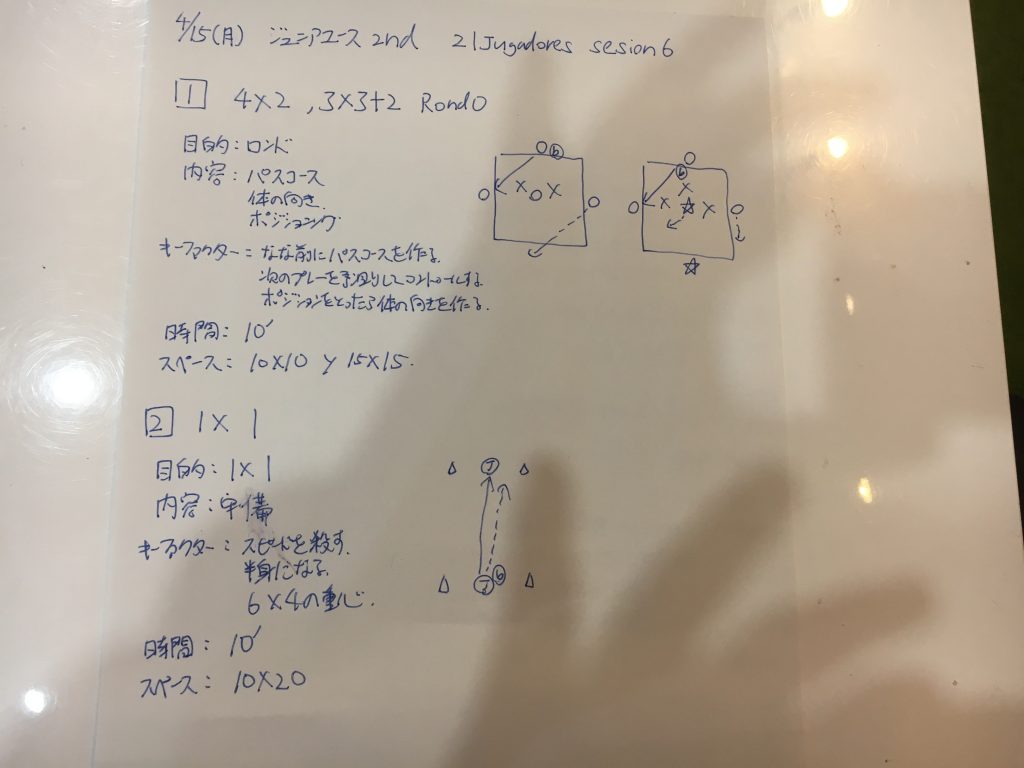 4/15(月) ジュニアユース 2nd 21 Jugadores sesion 6
1 4×2 , 3×3+2 Rondo
目的:ロンド
内容:パスコース
体の向き
ポジショニング
キーファクター:なな前にパスコースを作る.
次のプレーを先取りしてコントロールする.
ポジションをとったら体の向きを作る.
時間: 10'
スペース: 10×10 y 15×15.
2 1×1
目的: 1×1
内容:守備
キーファクター: スピードを殺す.
半身になる.
6×4の重心.
時間: 10'
スペース: 10×20